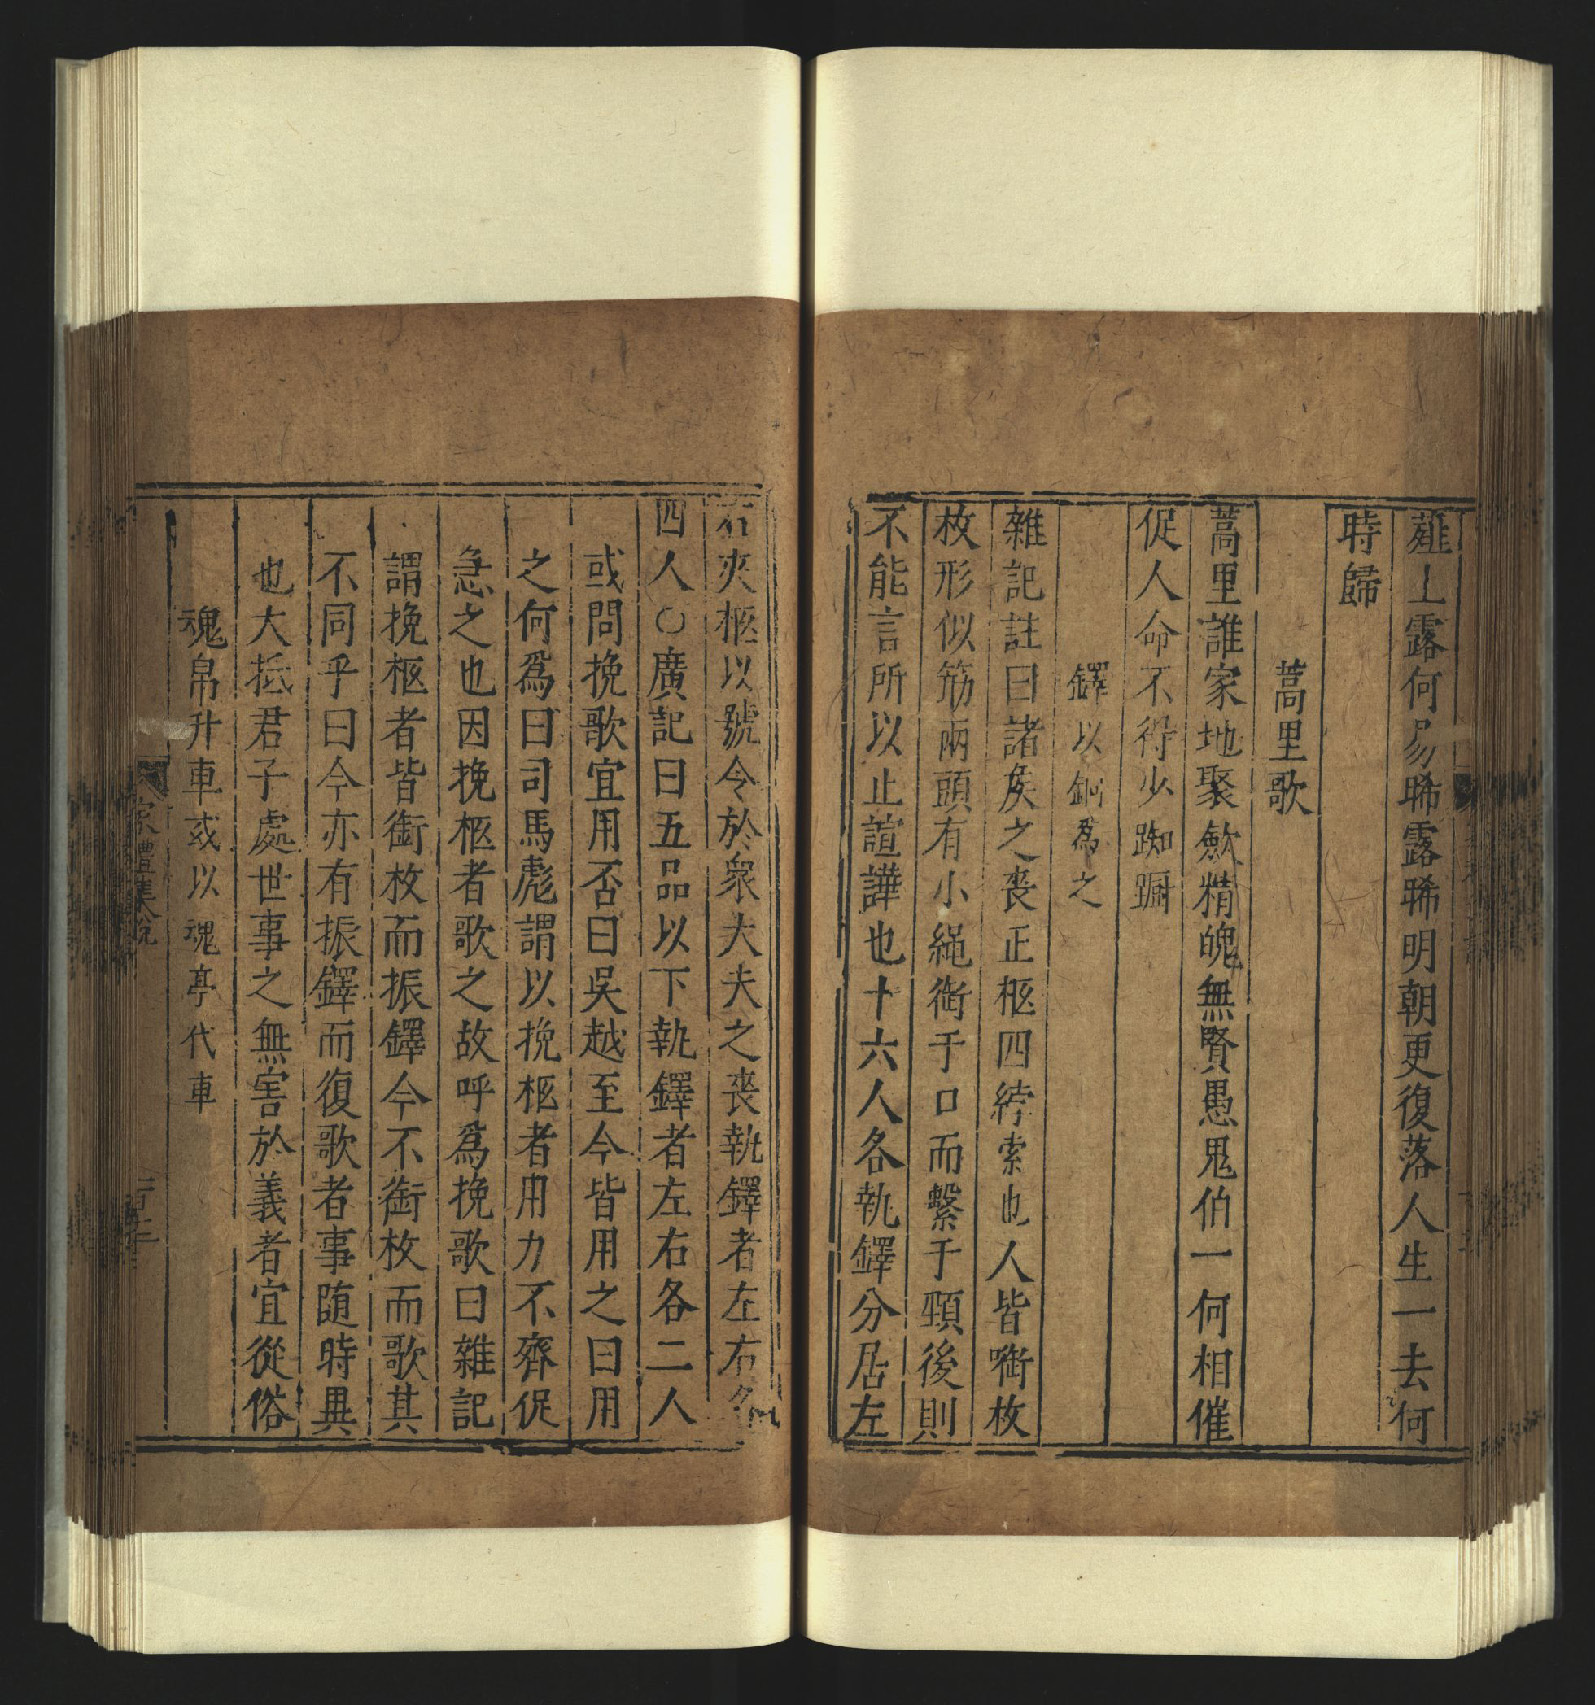 薤上露何易晞露晞明朝更復落人生一去何
時歸
蒿里歌
蒿里誰家地聚歛精魄無賢愚鬼伯一何相催
促人命不得少踟躕
鐸以銅爲之
雜記註曰諸矦之喪正柩四綍索也人皆啣枚
枚形似筯兩頭有小繩衔于口而繫于頸後則
不能言所以止諠譁也十六人各執鐸分居左
右夾柩以號令於衆大夫之喪執鐸者左右各
四人○廣記曰五品以下執鐸者左右各二人
或問挽歌宜用否曰吳越至今皆用之曰用
之何爲曰司馬彪謂以挽柩者用力不齊促
急之也因挽柩者歌之故呼爲挽歌曰雜記
謂挽柩者皆銜枚而振鐸今不銜枚而歌其
不同乎曰今亦有振鐸而復歌者事随時異
也大抵君子處世事之無害於義者宜從俗
魂帛升車或以魂亭代車
家禮集說